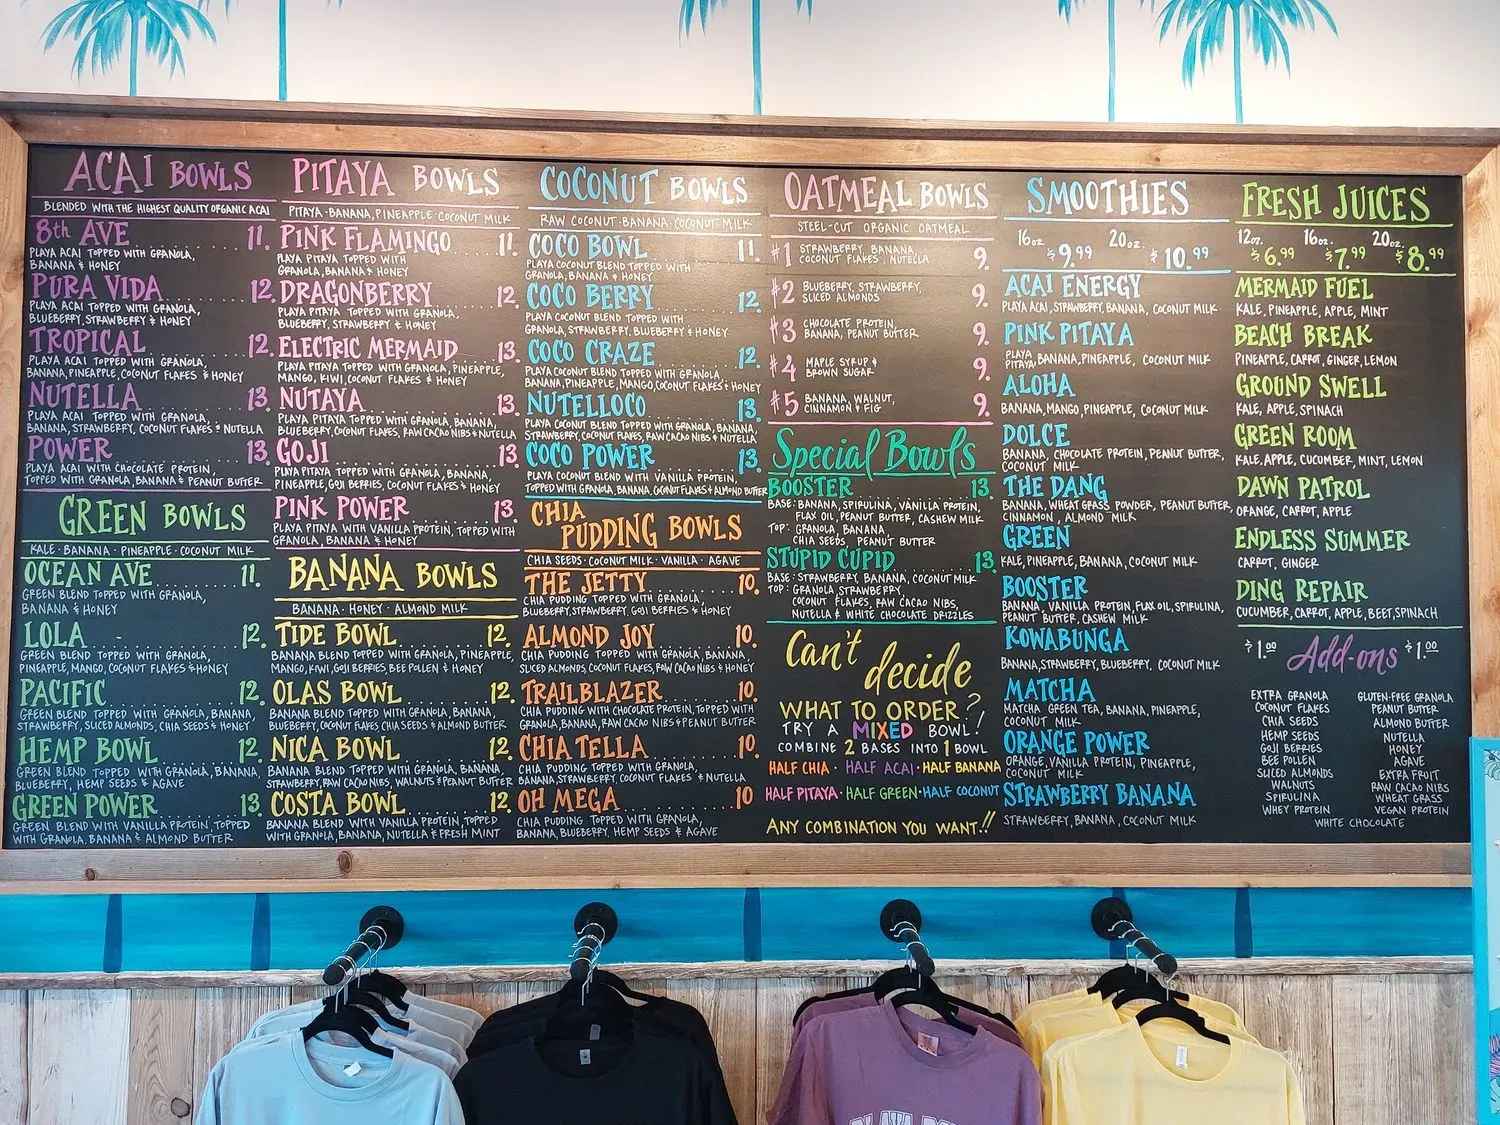 ACAI BOWLS
BLENDED WITH THE HIGHEST QUALITY ORGANIC ACAI
8th AVE 11.
PLAYA ACAI TOPPED WITH GRANOLA,
BANANA & HONEY
PURA VIDA 12.
PLAYA ACAI TOPPED WITH GRANOLA,
BLUEBERRY, STRAWBERRY & HONEY
TROPICAL 12.
PLAYA ACAI TOPPED WITH GRANOLA,
BANANA, PINEAPPLE, COCONUT FLAKES & HONEY
NUTELLA 13.
PLAYA ACAI TOPPED WITH GRANOLA,
BANANA, STRAWBERRY, COCONUT FLAKES & NUTELLA
POWER 13.
PLAYA ACAI WITH CHOCOLATE PROTEIN,
TOPPED WITH GRANOLA, BANANA & PEANUT BUTTER
GREEN BOWLS
KALE · BANANA · PINEAPPLE · COCONUT MILK
OCEAN AVE 11.
GREEN BLEND TOPPED WITH GRANOLA,
BANANA & HONEY
LOLA 12.
GREEN BLEND TOPPED WITH GRANOLA,
PINEAPPLE, MANGO, COCONUT FLAKES & HONEY
PACIFIC 12.
GREEN BLEND TOPPED WITH GRANOLA, BANANA,
STRAWBERRY, SLICED ALMONDS, CHIA SEEDS & HONEY
HEMP BOWL 12.
GREEN BLEND TOPPED WITH GRANOLA, BANANA,
BLUEBERRY, HEMP SEEDS & AGAVE
GREEN POWER 13.
GREEN BLEND WITH VANILLA PROTEIN, TOPPED
WITH GRANOLA, BANANA & ALMOND BUTTER
PITAYA BOWLS
PITAYA · BANANA, PINEAPPLE · COCONUT MILK
PINK FLAMINGO 11.
PLAYA PITAYA TOPPED WITH
GRANOLA, BANANA & HONEY
DRAGONBERRY 12.
PLAYA PITAYA TOPPED WITH GRANOLA,
BLUEBERRY, STRAWBERRY & HONEY
ELECTRIC MERMAID 13.
PLAYA PITAYA TOPPED WITH GRANOLA, PINEAPPLE,
MANGO, KIWI, COCONUT FLAKES & HONEY
NUTAYA 13.
PLAYA PITAYA TOPPED WITH GRANOLA, BANANA,
BLUEBERRY, COCONUT FLAKES, RAW CACAO NIBS & NUTELLA
GOJI 13.
PLAYA PITAYA TOPPED WITH GRANOLA, BANANA,
PINEAPPLE, GOJI BERRIES, COCONUT FLAKES & HONEY
PINK POWER 13.
PLAYA PITAYA WITH VANILLA PROTEIN, TOPPED WITH
GRANOLA, BANANA & HONEY
BANANA BOWLS
BANANA · HONEY · ALMOND MILK
TIDE BOWL 12.
BANANA BLEND TOPPED WITH GRANOLA, PINEAPPLE,
MANGO, KIWI, GOJI BERRIES, BEE POLLEN & HONEY
OLAS BOWL 12.
BANANA BLEND TOPPED WITH GRANOLA, BANANA,
BLUEBERRY, COCONUT FLAKES, CHIA SEEDS & ALMOND BUTTER
NICA BOWL 12.
BANANA BLEND TOPPED WITH GRANOLA, BANANA,
STRAWBERRY, RAW CACAO NIBS, WALNUTS & PEANUT BUTTER
COSTA BOWL 12.
BANANA BLEND WITH VANILLA PROTEIN, TOPPED
WITH GRANOLA, BANANA, NUTELLA & FRESH MINT
COCONUT BOWLS
RAW COCONUT · BANANA · COCONUT MILK
COCO BOWL 11.
PLAYA COCONUT BLEND TOPPED WITH
GRANOLA, BANANA & HONEY
COCO BERRY 12.
PLAYA COCONUT BLEND TOPPED WITH
GRANOLA, STRAWBERRY, BLUEBERRY & HONEY
COCO CRAZE 12.
PLAYA COCONUT BLEND TOPPED WITH GRANOLA,
BANANA, PINEAPPLE, MANGO, COCONUT FLAKES & HONEY
NUTELLOCO 13.
PLAYA COCONUT BLEND TOPPED WITH GRANOLA, BANANA,
STRAWBERRY, COCONUT FLAKES, RAW CACAO NIBS & NUTELLA
COCO POWER 13.
PLAYA COCONUT BLEND WITH VANILLA PROTEIN,
TOPPED WITH GRANOLA, BANANA, COCONUT FLAKES & ALMOND BUTTER
CHIA
PUDDING BOWLS
CHIA SEEDS · COCONUT MILK · VANILLA · AGAVE
THE JETTY 10.
CHIA PUDDING TOPPED WITH GRANOLA,
BLUEBERRY, STRAWBERRY, GOJI BERRIES & HONEY
ALMOND JOY 10.
CHIA PUDDING TOPPED WITH GRANOLA, BANANA,
SLICED ALMONDS, COCONUT FLAKES, RAW CACAO NIBS & HONEY
TRAILBLAZER 10.
CHIA PUDDING WITH CHOCOLATE PROTEIN, TOPPED WITH
GRANOLA, BANANA, RAW CACAO NIBS & PEANUT BUTTER
CHIATELLA 10.
CHIA PUDDING TOPPED WITH GRANOLA,
BANANA, STRAWBERRY, COCONUT FLAKES & NUTELLA
OH MEGA 10
CHIA PUDDING TOPPED WITH GRANOLA,
BANANA, BLUEBERRY, HEMP SEEDS & AGAVE
OATMEAL BOWLS
STEEL-CUT ORGANIC OATMEAL
#1 STRAWBERRY, BANANA 9.
COCONUT FLAKES, NUTELLA
#2 BLUEBERRY, STRAWBERRY, 9.
SLICED ALMONDS
#3 CHOCOLATE PROTEIN, 9.
BANANA, PEANUT BUTTER
#4 MAPLE SYRUP & 9.
BROWN SUGAR
#5 BANANA, WALNUT, 9.
CINNAMON & FIG
Special Bowls
BOOSTER 13.
BASE: BANANA, SPIRULINA, VANILLA PROTEIN,
FLAX OIL, PEANUT BUTTER, CASHEW MILK
TOP: GRANOLA, BANANA
CHIA SEEDS, PEANUT BUTTER
STUPID CUPID 13.
BASE: STRAWBERRY, BANANA, COCONUT MILK
TOP: GRANOLA, STRAWBERRY,
COCONUT FLAKES, RAW CACAO NIBS,
NUTELLA & WHITE CHOCOLATE DRIZZLES
Can't
decide
WHAT TO ORDER?
TRY A MIXED BOWL!
COMBINE 2 BASES INTO 1 BOWL
HALF CHIA · HALF ACAI · HALF BANANA
HALF PITAYA · HALF GREEN · HALF COCONUT
ANY COMBINATION YOU WANT!!
SMOOTHIES
16oz. $9.99 20oz. $10.99
ACAI ENERGY
PLAYA ACAI, STRAWBERRY, BANANA, COCONUT MILK
PINK PITAYA
PLAYA PITAYA, BANANA, PINEAPPLE, COCONUT MILK
ALOHA
BANANA, MANGO, PINEAPPLE, COCONUT MILK
DOLCE
BANANA, CHOCOLATE PROTEIN, PEANUT BUTTER,
COCONUT MILK
THE DANG
BANANA, WHEAT GRASS POWDER, PEANUT BUTTER,
CINNAMON, ALMOND MILK
GREEN
KALE, PINEAPPLE, BANANA, COCONUT MILK
BOOSTER
BANANA, VANILLA PROTEIN, FLAX OIL, SPIRULINA,
PEANUT BUTTER, CASHEW MILK
KOWABUNGA
BANANA, STRAWBERRY, BLUEBERRY, COCONUT MILK
MATCHA
MATCHA GREEN TEA, BANANA, PINEAPPLE,
COCONUT MILK
ORANGE POWER
ORANGE, VANILLA PROTEIN, PINEAPPLE,
COCONUT MILK
STRAWBERRY BANANA
STRAWBERRY, BANANA, COCONUT MILK
FRESH JUICES
12oz. $6.99 16oz. $7.99 20oz. $8.99
MERMAID FUEL
KALE, PINEAPPLE, APPLE, MINT
BEACH BREAK
PINEAPPLE, CARROT, GINGER, LEMON
GROUND SWELL
KALE, APPLE, SPINACH
GREEN ROOM
KALE, APPLE, CUCUMBER, MINT, LEMON
DAWN PATROL
ORANGE, CARROT, APPLE
ENDLESS SUMMER
CARROT, GINGER
DING REPAIR
CUCUMBER, CARROT, APPLE, BEET, SPINACH
$1.00 Add-ons $1.00
EXTRA GRANOLA
COCONUT FLAKES
CHIA SEEDS
HEMP SEEDS
GOJI BERRIES
BEE POLLEN
SLICED ALMONDS
WALNUTS
SPIRULINA
WHEY PROTEIN
GLUTEN-FREE GRANOLA
PEANUT BUTTER
ALMOND BUTTER
NUTELLA
HONEY
AGAVE
EXTRA FRUIT
RAW CACAO NIBS
WHEAT GRASS
VEGAN PROTEIN
WHITE CHOCOLATE